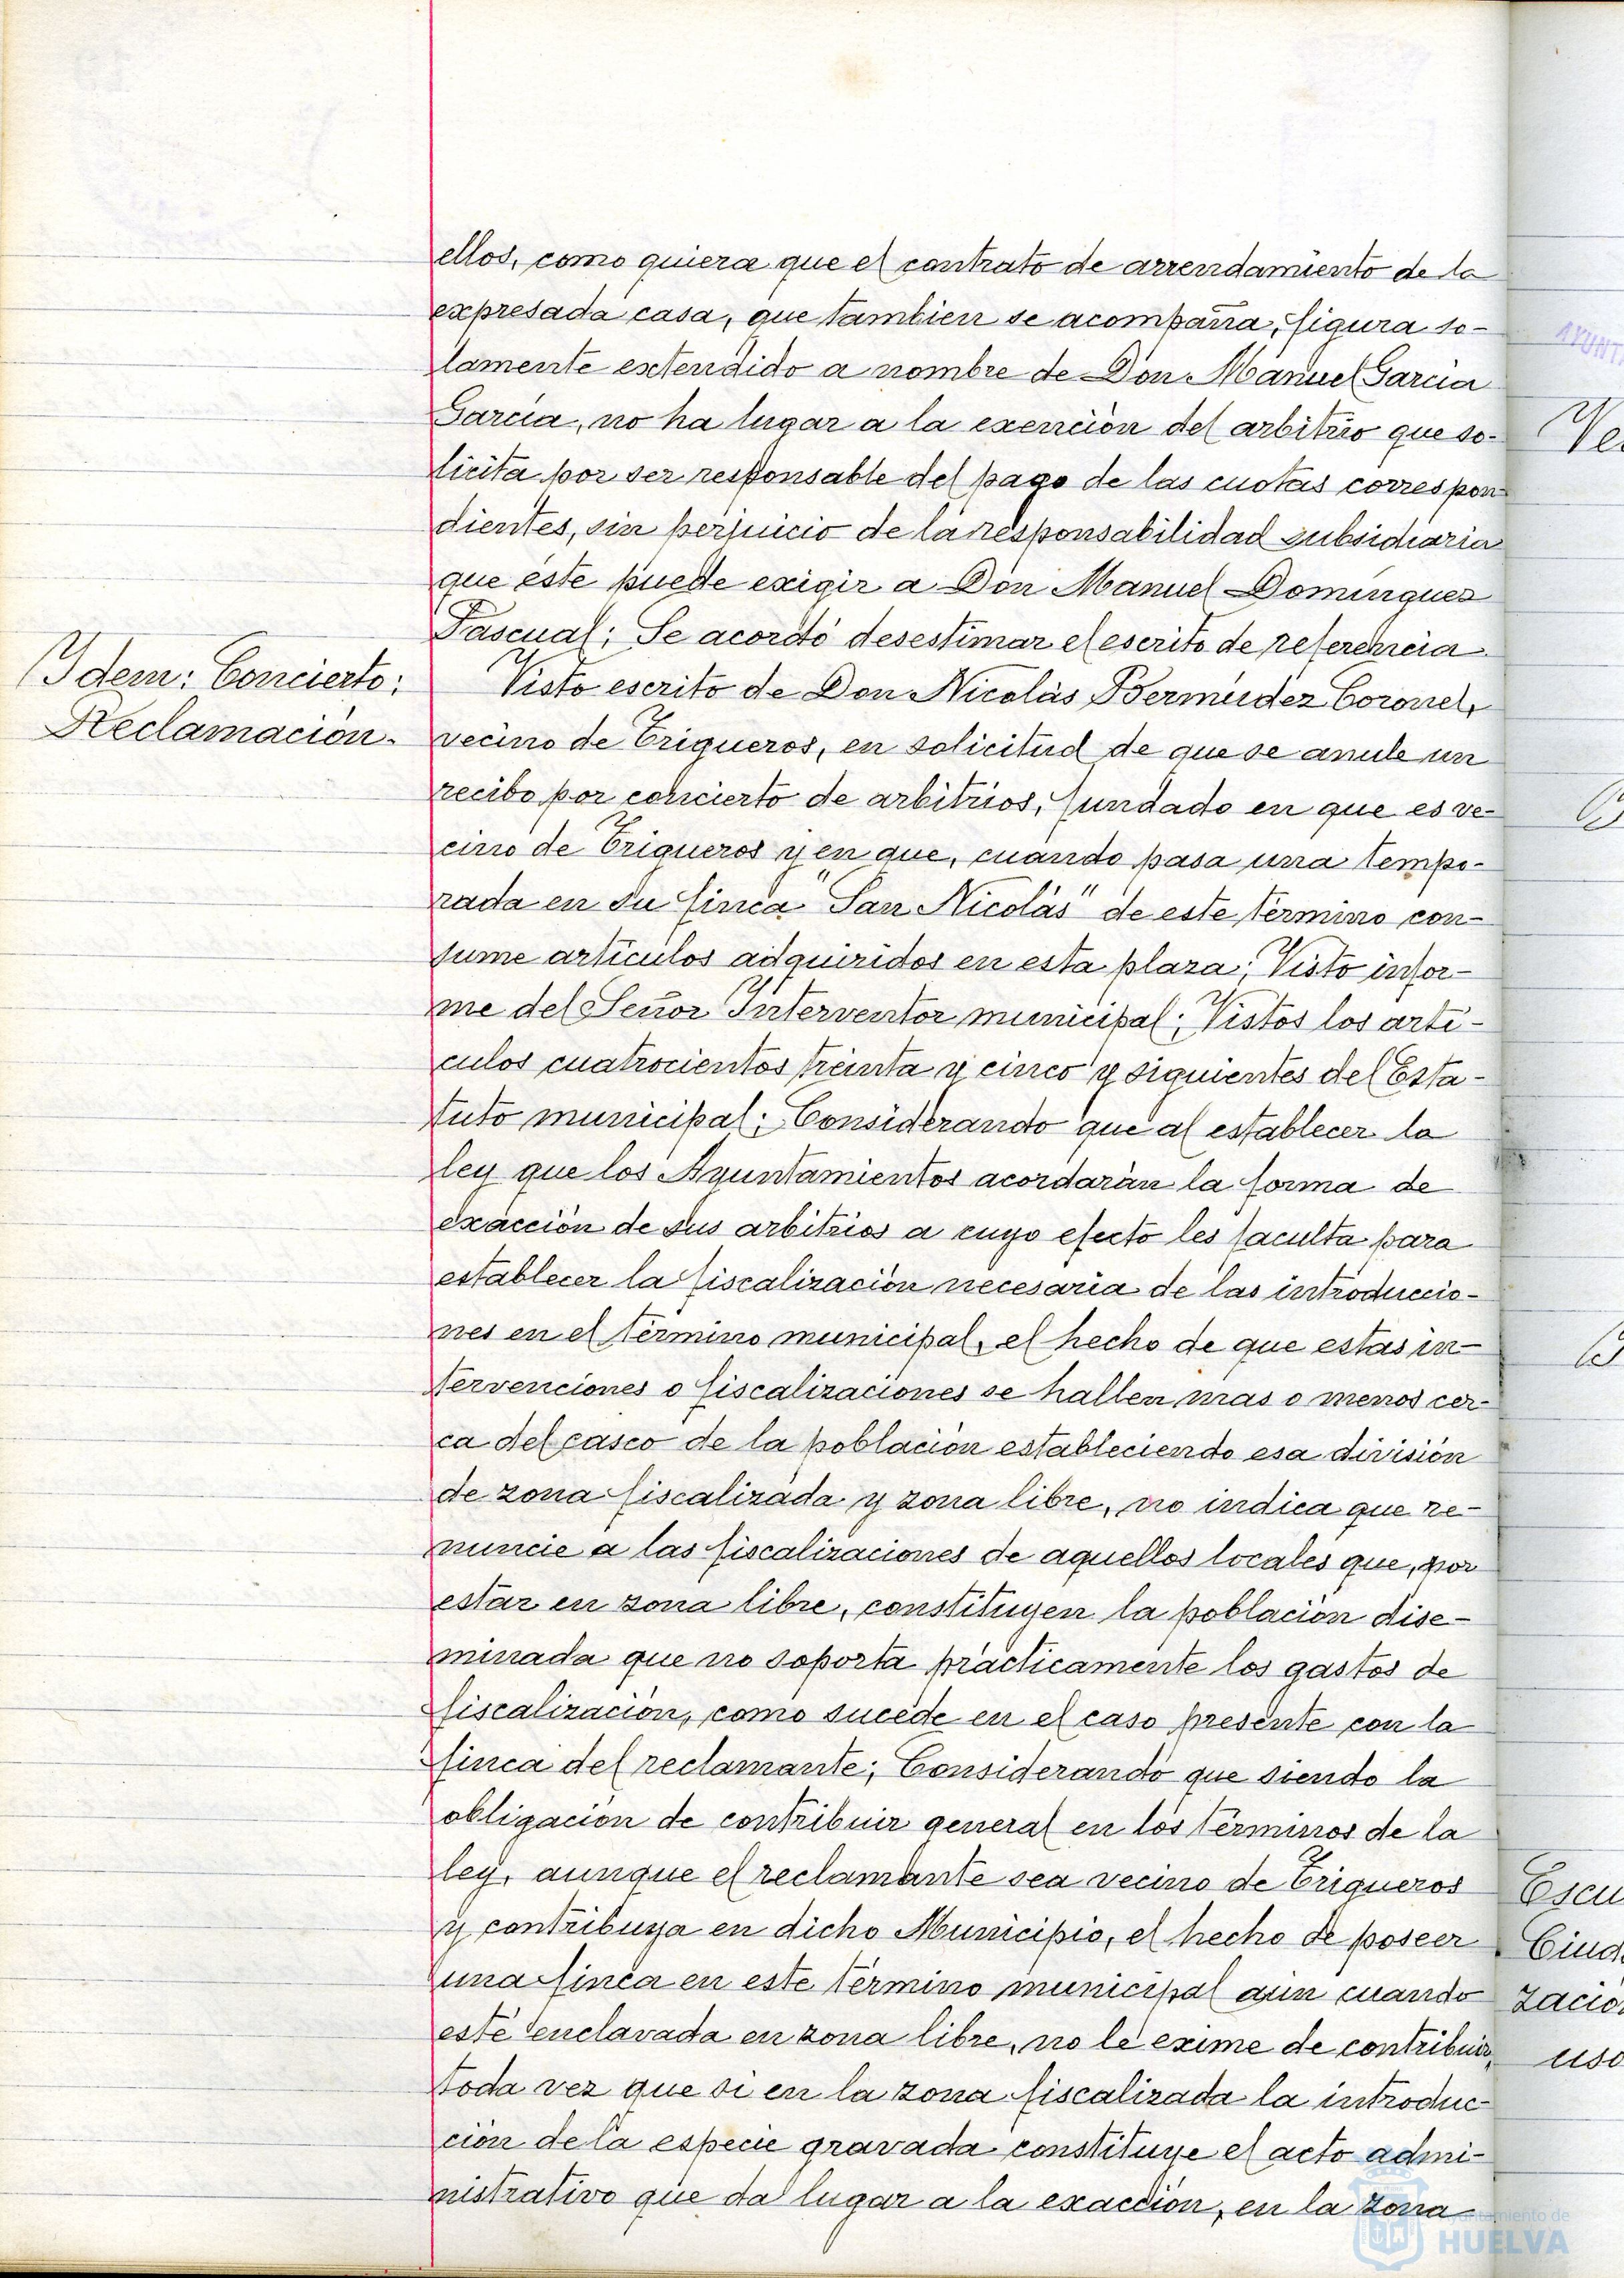 ellos, como quiera que el contrato de arrendamiento de la
expresada casa, que tambien se acompaña, figura so-
lamente extendido a nombre de Don Manuel Garcia
Garcia, no ha lugar a la exención del arbitrio que so-
licita por ser responsable del pago de las cuotas correspon
dientes, sin perjuicio de la responsabilidad subsidiaria
que éste puede exigir a Don Manuel Dominguez
Pascual; Se acordó desestimar el escrito de referencia.
Idem: Concierto:
Reclamación.
Visto escrito de Don Nicolás Bermúdez Coronel,
vecino de Trigueros, en solicitud de que se anule un
recibo por concierto de arbitrios, fundado en que es ve-
cino de Trigueros y en que, cuando pasa una tempo-
rada en su finca "San Nicolás" de este término con-
sume artículos adquiridos en esta plaza; Visto infor-
me del Señor Interventor municipal; Vistos los artí-
culos cuatrocientos treinta y cinco y siguientes del Esta-
tuto municipal; Considerando que al establecer la
ley que los Ayuntamientos acordarán la forma de
exacción de sus arbitrios a cuyo efecto les faculta para
establecer la fiscalización necesaria de las introduccio-
nes en el término municipal, el hecho de que estas in-
tervenciones o fiscalizaciones se hallen mas o menos cer-
ca del casco de la población estableciendo esa división
de zona fiscalizada y zona libre, no indica que re-
nuncie a las fiscalizaciones de aquellos locales que, por
estar en zona libre, constituyen la población dise-
minada que no soporta prácticamente los gastos de
fiscalización, como sucede en el caso presente con la
finca del reclamante; Considerando que siendo la
obligación de contribuir general en los términos de la
ley, aunque el reclamante sea vecino de Trigueros
y contribuya en dicho Municipio, el hecho de poseer
una finca en este término municipal aún cuando
esté enclavada en zona libre, no le exime de contribuir,
toda vez que si en la zona fiscalizada la introduc-
ción de la especie gravada constituye el acto admi-
nistrativo que da lugar a la exacción, en la zona
Ayuntamiento de
HUELVA